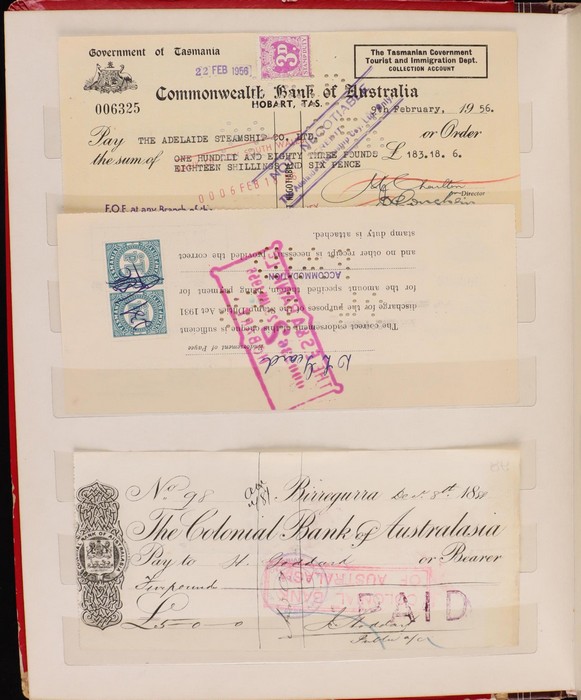 Government of Tasmania
22 FEB 1956
3D
The Tasmanian Government
Tourist and Immigration Dept.
COLLECTION ACCOUNT
006325
Commonwealth Bank of Australia
HOBART, TAS.
February, 1956.
Pay THE ADELAIDE STEAMSHIP CO. LTD. or Order
the sum of ONE HUNDRED AND EIGHTY THREE POUNDS £ 183.18. 6.
EIGHTEEN SHILLINGS AND SIX PENCE
NOT NEGOTIABLE
Director
F.O.E. at any Branch of the
The correct endorsement of this cheque is sufficient
discharge for the purposes of the Stamp Duties Act 1931
for the amount specified therein, being payment for
ACCOMMODATION
and no other receipt is necessary provided the correct
stamp duty is attached.
Endorsement of Payee
No 98
Birregurra Dec. 8th
The Colonial Bank of Australasia
Pay to H. Goddard or Bearer
Five pounds
£5-0-0
COLONIAL BANK
OF AUSTRALASIA
PAID